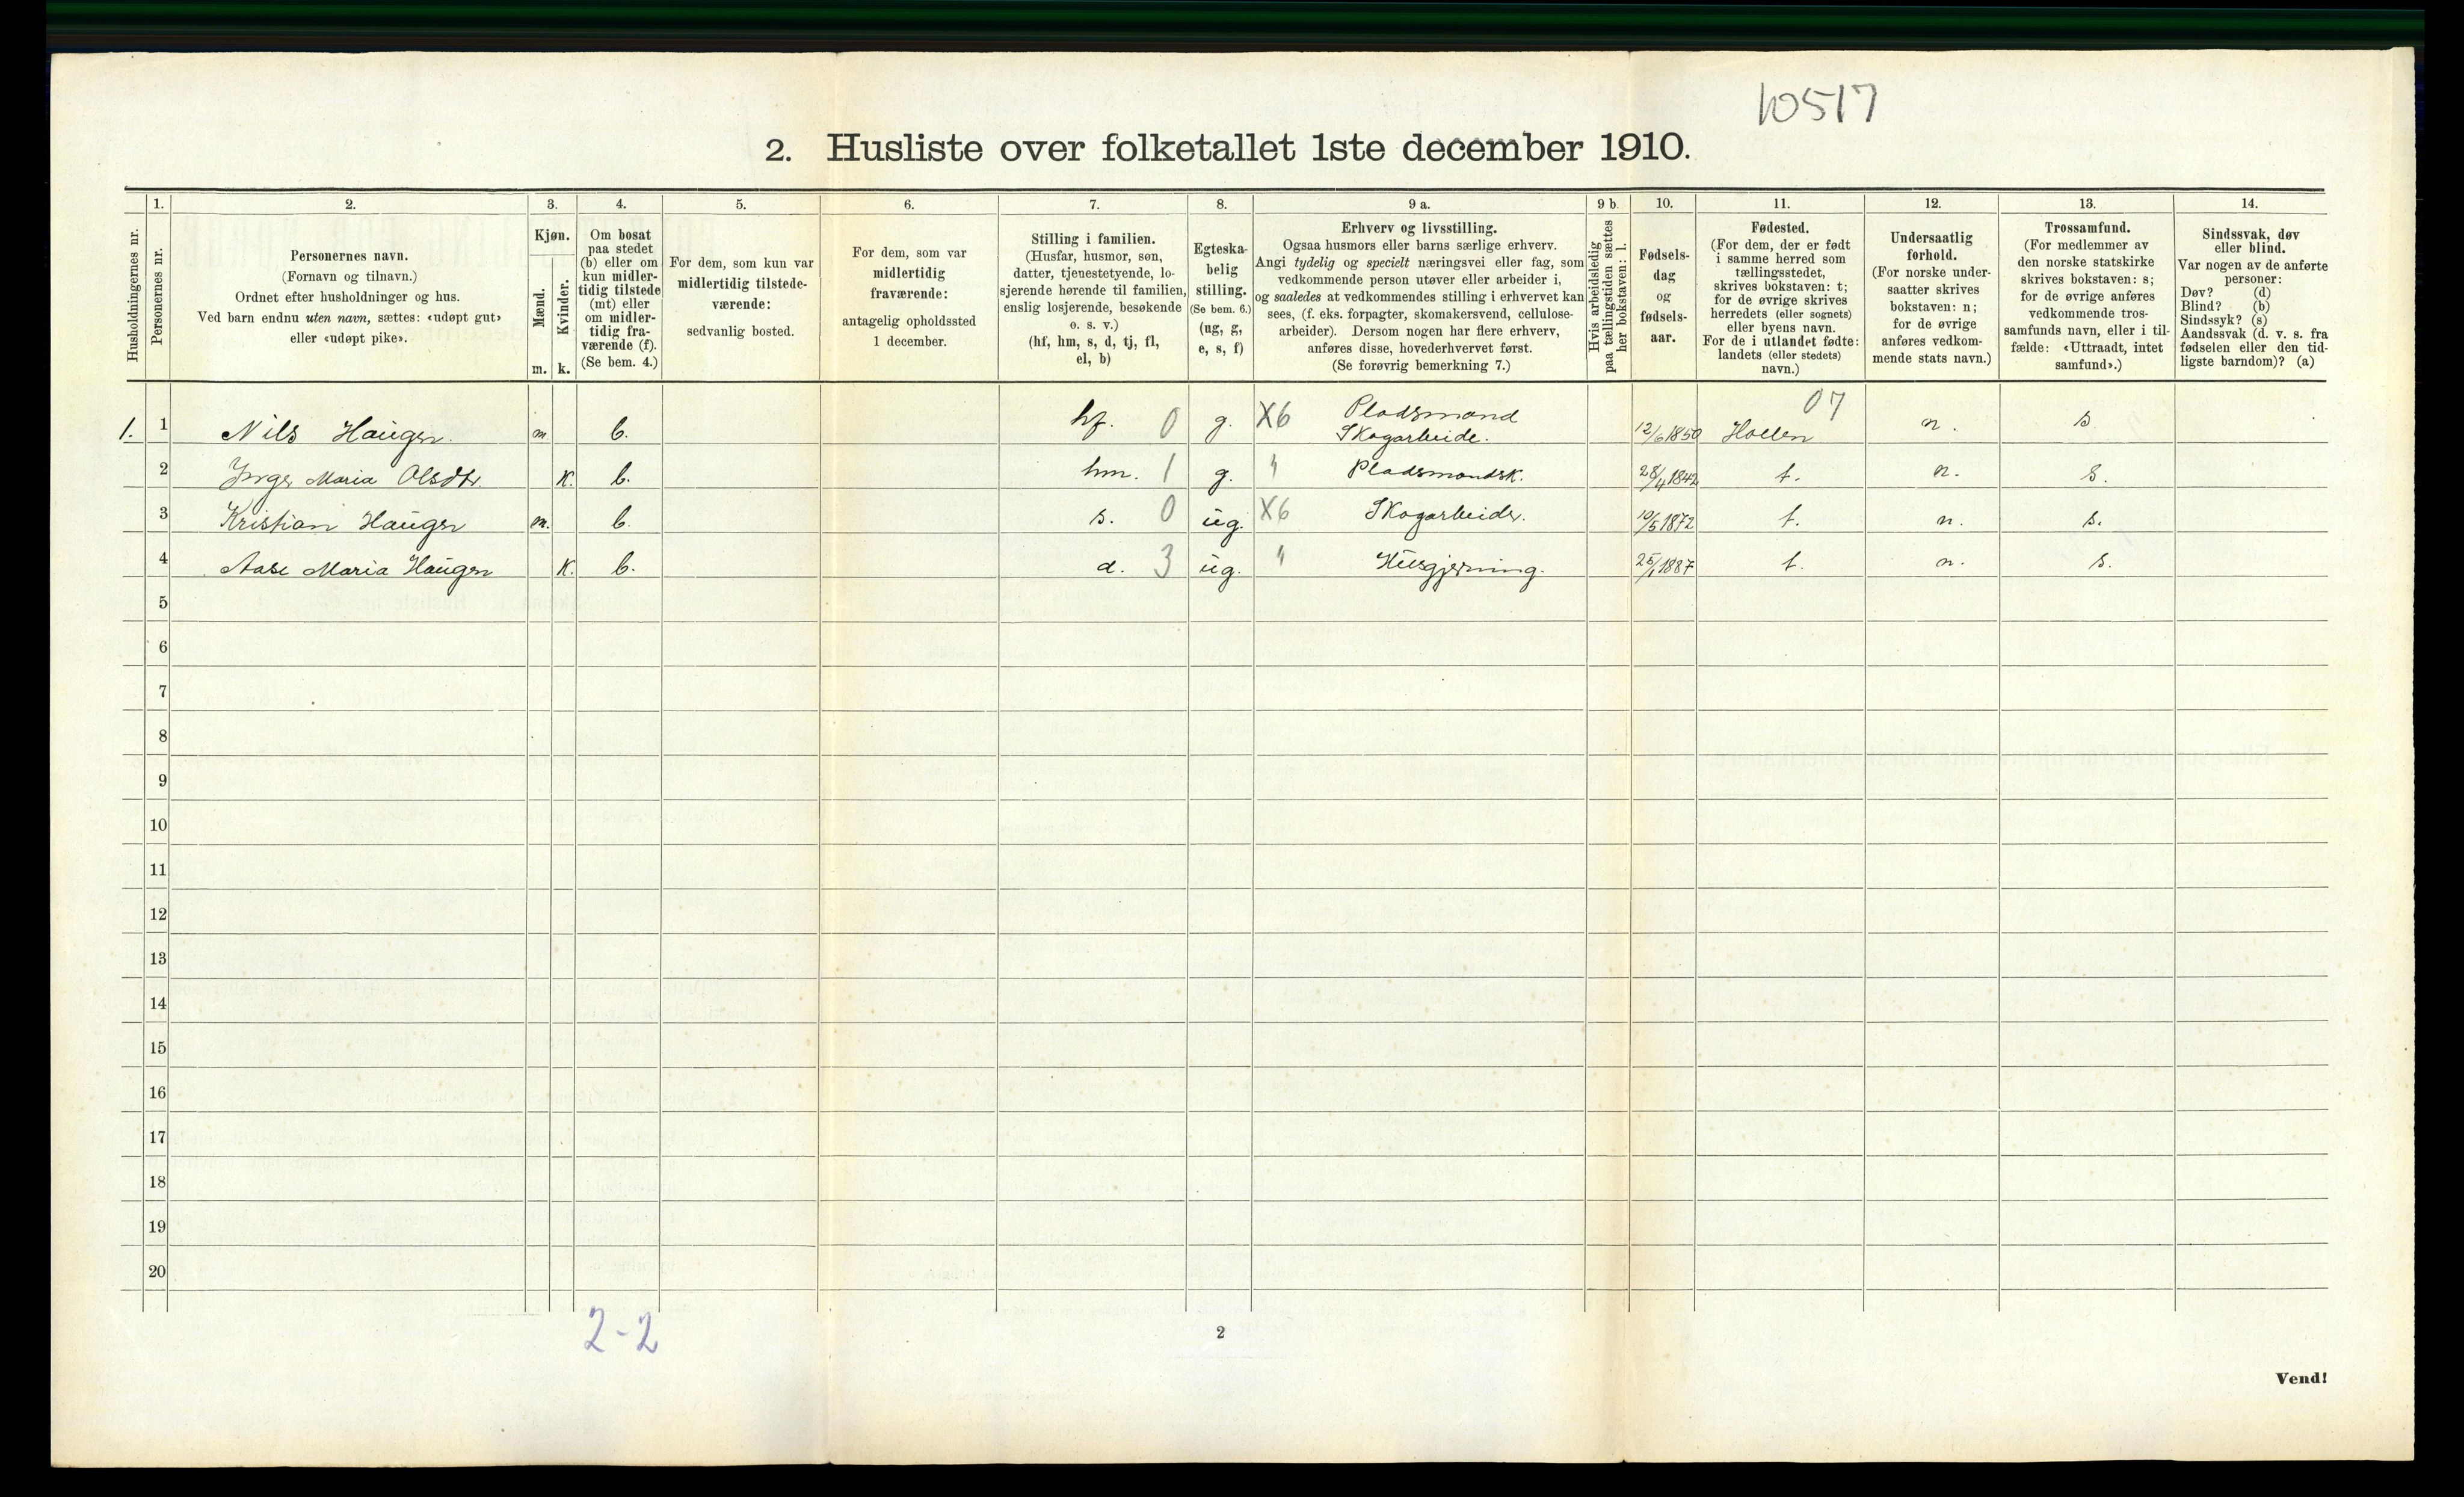 10517
2. Husliste over folketallet 1ste december 1910.
1. 2. 3. 4. 5. 6. 7. 8. 9 a. 9 b. 10. 11. 12. 13. 14.
Husholdningernes nr.
Personernes nr.
Personernes navn.
(Fornavn og tilnavn.)
Ordnet efter husholdninger og hus.
Ved barn endnu uten navn, sættes: «udøpt gut»
eller «udøpt pike».
Kjøn.
Mænd.
Kvinder.
m. k.
Om bosat
paa stedet
(b) eller om
kun midler-
tidig tilstede
(mt) eller
om midler-
tidig fra-
værende (f).
(Se bem. 4.)
For dem, som kun var
midlertidig tilstede-
værende:
sedvanlig bosted.
For dem, som var
midlertidig
fraværende:
antagelig opholdssted
1 december.
Stilling i familien.
(Husfar, husmor, søn,
datter, tjenestetyende, lo-
sjerende hørende til familien,
enslig losjerende, besøkende
o. s. v.)
(hf, hm, s, d, tj, fl,
el, b)
Egteska-
belig
stilling.
(Se bem. 6.)
(ug, g,
e, s, f)
Erhverv og livsstilling.
Ogsaa husmors eller barns særlige erhverv.
Angi tydelig og specielt næringsvei eller fag, som
vedkommende person utøver eller arbeider i,
og saaledes at vedkommendes stilling i erhvervet kan
sees, (f. eks. forpagter, skomakersvend, cellulose-
arbeider). Dersom nogen har flere erhverv,
anføres disse, hovederhvervet først.
(Se forøvrig bemerkning 7.)
Hvis arbeidsledig
paa tællingstiden sættes
her bokstaven: l.
Fødsels-
dag
og
fødsels-
aar.
Fødested.
(For dem, der er født
i samme herred som
tællingsstedet,
skrives bokstaven: t;
for de øvrige skrives
herredets (eller sognets)
eller byens navn.
For de i utlandet fødte:
landets (eller stedets)
navn.)
Undersaatlig
forhold.
(For norske under-
saatter skrives
bokstaven: n;
for de øvrige
anføres vedkom-
mende stats navn.)
Trossamfund.
(For medlemmer av
den norske statskirke
skrives bokstaven: s;
for de øvrige anføres
vedkommende tros-
samfunds navn, eller i til-
fælde: «Uttraadt, intet
samfund».)
Sindssvak, døv
eller blind.
Var nogen av de anførte
personer:
Døv? (d)
Blind? (b)
Sindssyk? (s)
Aandssvak (d. v. s. fra
fødselen eller den tid-
ligste barndom)? (a)
Pladsmand 07
1. 1 Nils Haugen. m. b. hf. 0 g. X6 Skogarbeide. 12/6 1850 Hollen n. s
2 Inger Maria Olsdtr. k. b. hm. 1 g. " Pladsmandsk. 28/4 1842 t. n. s.
3 Kristian Haugen m. b. s. 0 ug. X6 Skogarbeider. 10/5 1872 t. n. s.
4 Aase Maria Haugen k. b. d. 3 ug. " Husgjerning. 25/1 1887 t. n. s.
5
6
7
8
9
10
11
12
13
14
15
16
17
18
19
20
2-2
2
Vend!